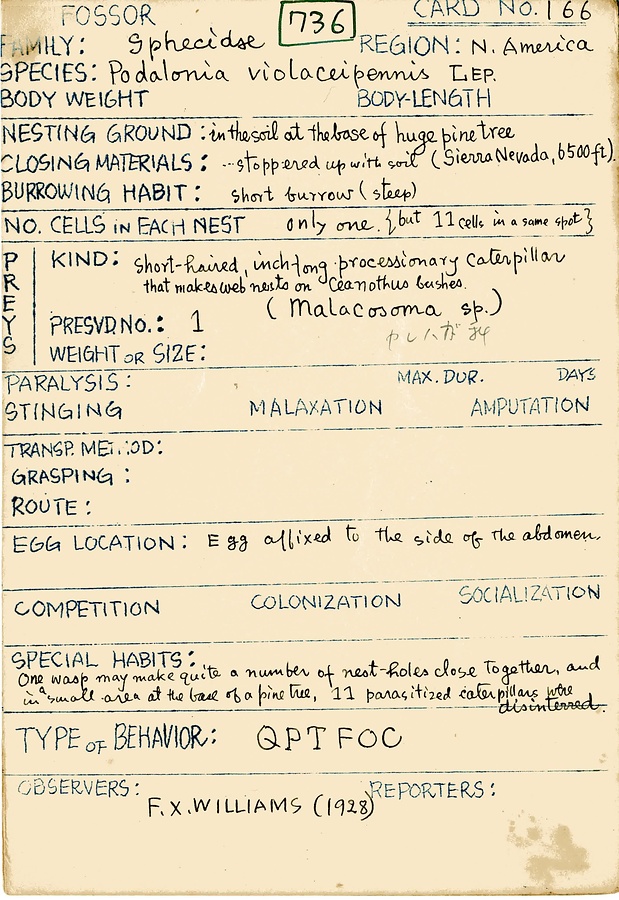 FOSSOR 736 CARD NO. 166
FAMILY: Sphecidae REGION: N. America
SPECIES: Podalonia violaceipennis LEP.
BODY WEIGHT BODY-LENGTH
NESTING GROUND: in the soil at the base of huge pine tree
CLOSING MATERIALS: ...stoppered up with soil (Sierra Nevada, 6500 ft).
BURROWING HABIT: short burrow (steep)
NO. CELLS IN EACH NEST only one. {but 11 cells in a same spot}
PREYS
KIND: short-haired, inch-long processionary caterpillar
that makes web nests on Ceanothus bushes.
(Malacosoma sp.)
PRESVD NO.: 1
WEIGHT OR SIZE:
PARALYSIS: MAX. DUR. DAYS
STINGING MALAXATION AMPUTATION
TRANSP. METHOD:
GRASPING:
ROUTE:
EGG LOCATION: Egg affixed to the side of the abdomen.
COMPETITION COLONIZATION SOCIALIZATION
SPECIAL HABITS:
One wasp may make quite a number of nest-holes close together, and
in a small area at the base of a pine tree, 11 parasitized caterpillars were
disinterred.
TYPE OF BEHAVIOR: QPTFOC
OBSERVERS: REPORTERS:
F.X. WILLIAMS (1928)